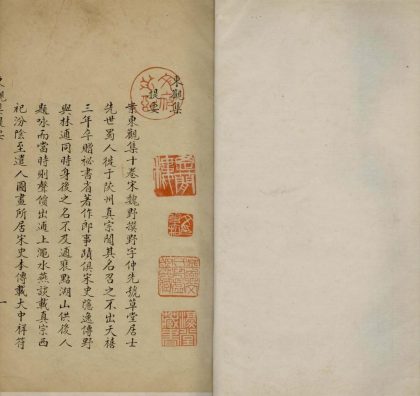 東觀集
提要
案東觀集十卷宋魏野撰野字仲先號草堂居士
先世蜀人徙于陝州真宗聞其名召之不出天禧
三年卒贈祕書省著作郎事蹟俱宋史隱逸傳野
與林逋同時身後之名不及逋裝點湖山供後人
題咏而當時則聲價出逋上澠水燕談載真宗西
祀汾陰至遣人圖畫所居宋史本傳載大中祥符
東觀集提要 一